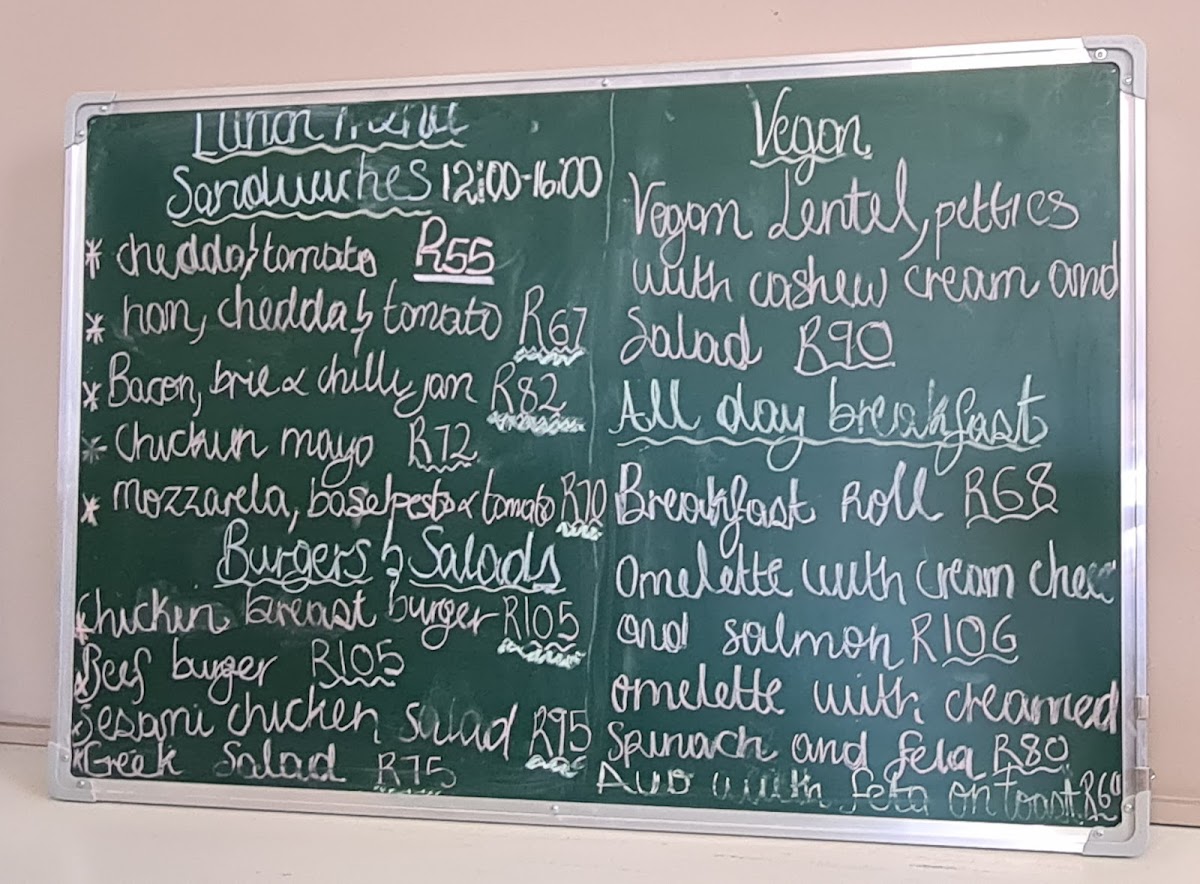 Lunch Menu
Sandwiches 12:00-16:00
* cheddar & tomato R55
* ham, cheddar & tomato R67
* Bacon, brie & chilli jam R82
* Chicken mayo R72
* Mozzarela, basel pesto & tomato R70
Burgers & Salads
*Chicken breast burger R105
*Beef burger R105
*Sesami chicken salad R95
*Greek Salad R75
Vegan
Vegan Lentel, petties
with cashew cream and
Salad R90
All day breakfast
Breakfast Roll R68
Omelette with cream chee
and salmon R106
omelette with creamed
Spinach and feta R80
Avo with feta on toast. R60